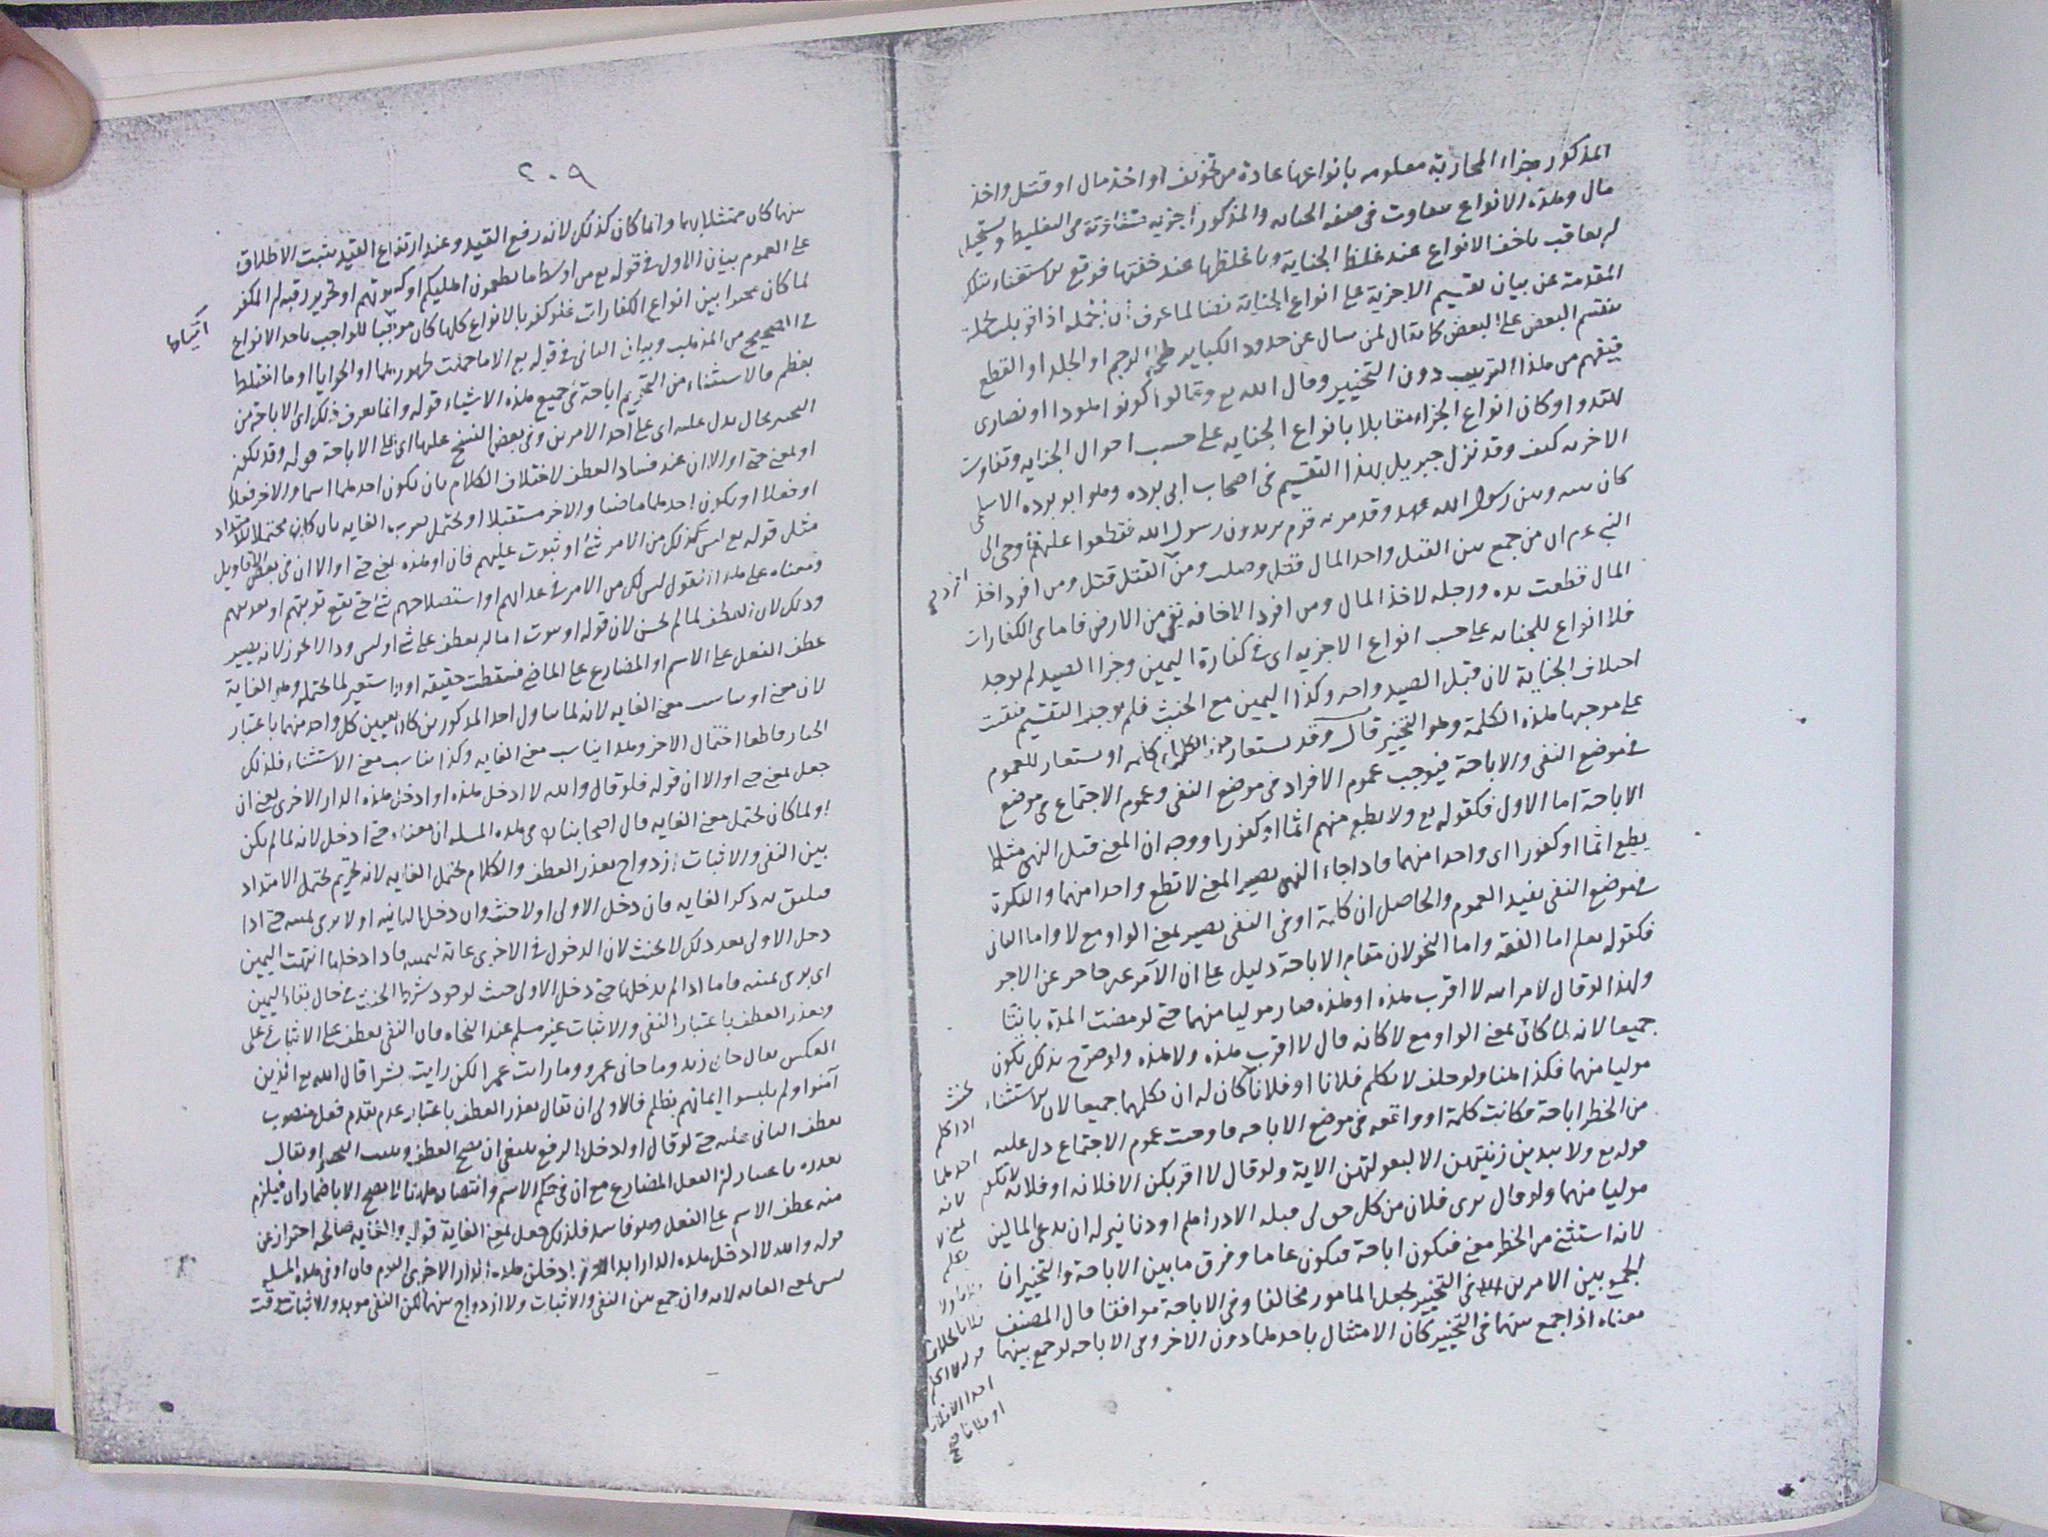 المذكور جزاء المحاربة معلومه بانواعها عادة من تخويف او اخذ مال او قتل واخذ
مال وهذه الانواع تتفاوت فى صفه الجنايه والمذكور اجزيه متفاوتة فى التغليظ ويستحيل
ان يعاقب باخف الانواع عند غلظ الجناية وباغلظها عند خفتها فوقع الاستغناء بتلك
المقدمة عن بيان تقسيم الاجزية على انواع الجناية نصا لما عرف ان الجملة اذا قوبلت بجملة
ينقسم البعض على البعض كما يقال لمن سال عن حدود الكباير الرجم او الجلد او القطع
فيفهم من هذا الترتيب دون التخيير وقال الله تع وقالوا كونوا هودا او نصارى
تهتدوا وكان انواع الجزاء مقابلا بانواع الجنايه على حسب احوال الجنايه وتفاوت
الاخريه كيف وقد نزل جبريل بهذا التقسيم فى اصحاب ابى برده وهو ابو برده الاسلمى
كان بينه وبين رسول الله عهد وقد مر به قوم يريدون رسول الله فقطعوا عليهم فاوحى الى
النبى عم ان من جمع بين القتل واخذ المال قتل وصلب ومن القتل قتل ومن افرد اخذ
افرد صح
المال قطعت يده ورجله لاخذ المال ومن افرد الاخافه نفى من الارض فاما فى الكفارات
فلا انواع للجنايه على حسب انواع الاجزيه اى فى كفارة اليمين وجزا الصيد لم يوجد
اختلاف الجناية لان قتل الصيد واحد وكذا اليمين مع الحنث فلم يوجد التقسيم فبقيت
على موجبها هذه الكلمة وهو التخيير قال وقد تستعار هذه الكلمة اى كلمه او يستعار للعموم
فى موضع النفى والاباحة فيوجب عموم الافراد فى موضع النفى وعموم الاجتماع فى موضع
الاباحة اما الاول فكقوله تع ولا تطع منهم اثما او كفورا ووجه ان المعنى قبل النهى مثلا
يطع اثما او كفورا اى واحدا منهما فاذا جاء النهى يصير المعنى لا تطع واحدا منهما والنكرة
فى موضع النفى تفيد العموم والحاصل ان كلمة او فى النفى يصير بمعنى الواو مع لا واما الثانى
فكقوله تعلم اما الفقه واما النحو لان مقام الاباحة دليل على ان الآمر غير حاجر عن الاخر
ولهذا لو قال لامراته لا اقرب هذه او هذه صار موليا منهما حتى لو مضت المدة بانتا
جميعا لانه لما كان بمعنى الواو مع لا كانه قال لا اقرب هذه ولا هذه ولو صرح بذلك يكون
موليا منهما فكذا هنا ولو حلف لا يكلم فلانا او فلانا كان له ان يكلمها جميعا لان الاستثناء
من الحظر اباحة فكانت كلمة او واقعه فى موضع الاباحه فاوجبت عموم الاجتماع دل عليه
قوله تع ولا يبدين زينتهن الا لبعولتهن الاية ولو قال لا اقربكن الا فلانه او فلانه لا يكون
موليا منهما ولو قال برى فلان من كل حق لى قبله الا دراهم او دنانير له ان يدعى المالين
لانه استثنى من الحظر معنى فيكون اباحة فيكون عاما وفرق ما بين الاباحة والتخيير ان
الجمع بين الامرين فى التخيير يجعل المامور مخالفا وفى الاباحة موافقا قال المصنف
معناه اذا جمع بينهما فى التخيير كان الامتثال باحدهما دون الاخر وفى الاباحه لو جمع بينهما
يحنث
اذا كلم
احدهما
لانه
بمعنى لا
قوله لا اكلم
احدا الا فلانا
او فلانا صح
٢٠٩
بينهما كان ممتثلا بهما وانما كان كذلك لانه رفع القيد وعند ارتفاع القيد يثبت الاطلاق
على العموم بيان الاول فى قوله تع من اوسط ما تطعمون اهليكم او كسوتهم او تحرير رقبة ان المكفر
لما كان مخيرا بين انواع الكفارات فلو كفر بالانواع كلها كان مودّيا للواجب باحد الانواع
فى الصحيح من المذهب وبيان الثانى فى قوله تع الا ما حملت ظهورهما او الحوايا او ما اختلط
بعظم فالاستثناء من التحريم اباحة فى جميع هذه الاشياء قوله وانما يعرف ذلك اى الاباحة من
التخيير بحال يدل عليه اى على احد الامرين وفى بعض النسخ عليها اى على الاباحة قوله وقد تكون
او بمعنى حتى او الا ان عند فساد العطف لاختلاف الكلام بان يكون احدهما اسما والاخر فعلا
او فعلا او يكون احدهما ماضيا والاخر مستقبلا او يحتمل ضرب الغايه بان كان محتملا للامتداد
مثل قوله تع ليس لك من الامر شئ او يتوب عليهم فان او هذه بمعنى حتى او الا ان فى بعض الاقاويل
ومعناه على هذا القول ليس لك من الامر فى عذابهم او استصلاحهم شئ حتى تقع توبتهم او تعذيبهم
وذلك لان العطف لما لم يحسن لان قوله او يتوب اما ان يعطف على شئ او ليس وذا لا يجوز لانه يصير
عطف الفعل على الاسم او المضارع على الماضى فسقطت حقيقه او استعير لما يحتمله وهو الغاية
لان معنى او يناسب معنى الغايه لانه لما تناول احد المذكورين كان تعيين كل واحد منهما باعتبار
الخيار قاطعا احتمال الاخر وهذا يناسب معنى الغايه وكذا يناسب معنى الاستثناء فلذلك
جعل بمعنى حتى او الا ان قوله فلو قال والله لا ادخل هذه او ادخل هذه الدار الاخرى بمعنى ان
ولما كان يحتمل معنى الغايه قال اصحابنا فى هذه المسله ان معناه حتى ادخل لانه لما لم يكن
بين النفى والاثبات ازدواج تعذر العطف والكلام يحتمل الغايه لانه تحريم يحتمل الامتداد
فيليق به ذكر الغايه فان دخل الاولى اولا حنث وان دخل الثانيه اولا برى يمينه حتى اذا
دخل الاولى بعد ذلك لا يحنث لان الدخول فى الاخرى غاية ليمينه فاذا دخلها انتهت اليمين
اى برى يمينه فاما اذا لم يدخلها حتى دخل الاولى حنث لوجود شرط الحنث فى حال بقاء اليمين
وتعذر العطف باعتبار النفى والاثبات غير مسلم عند النحاه فان النفى يعطف على الاثبات وعلى
العكس يقال جانى زيد وما جانى عمرو وما رايت عمرا لكن رايت بشرا قال الله تع الذين
آمنوا ولم يلبسوا ايمانهم بظلم فالاولى ان يقال تعذر العطف باعتبار عدم تقدم فعل منصوب
يعطف الثانى عليه حتى لو قال او ادخل بالرفع ينبغى ان يصح العطف ويثبت التخيير او يقال
تعذره باعتبار ان الفعل المضارع مع ان فى حكم الاسم وانتصابه هاهنا لا يصح الا باضمار ان فيلزم
منه عطف الاسم على الفعل وهو فاسد فلذلك جعل بمعنى الغاية قوله والغايه صالحه احتراز عن
قوله والله لا ادخل هذه الدار ابدا او ادخلن هذه الدار الاخرى اليوم فان او فى هذه المسله
ليس بمعنى الغايه لانه وان جمع بين النفى والاثبات ولا ازدواج بينهما لكن النفى موبد والاثبات موقت